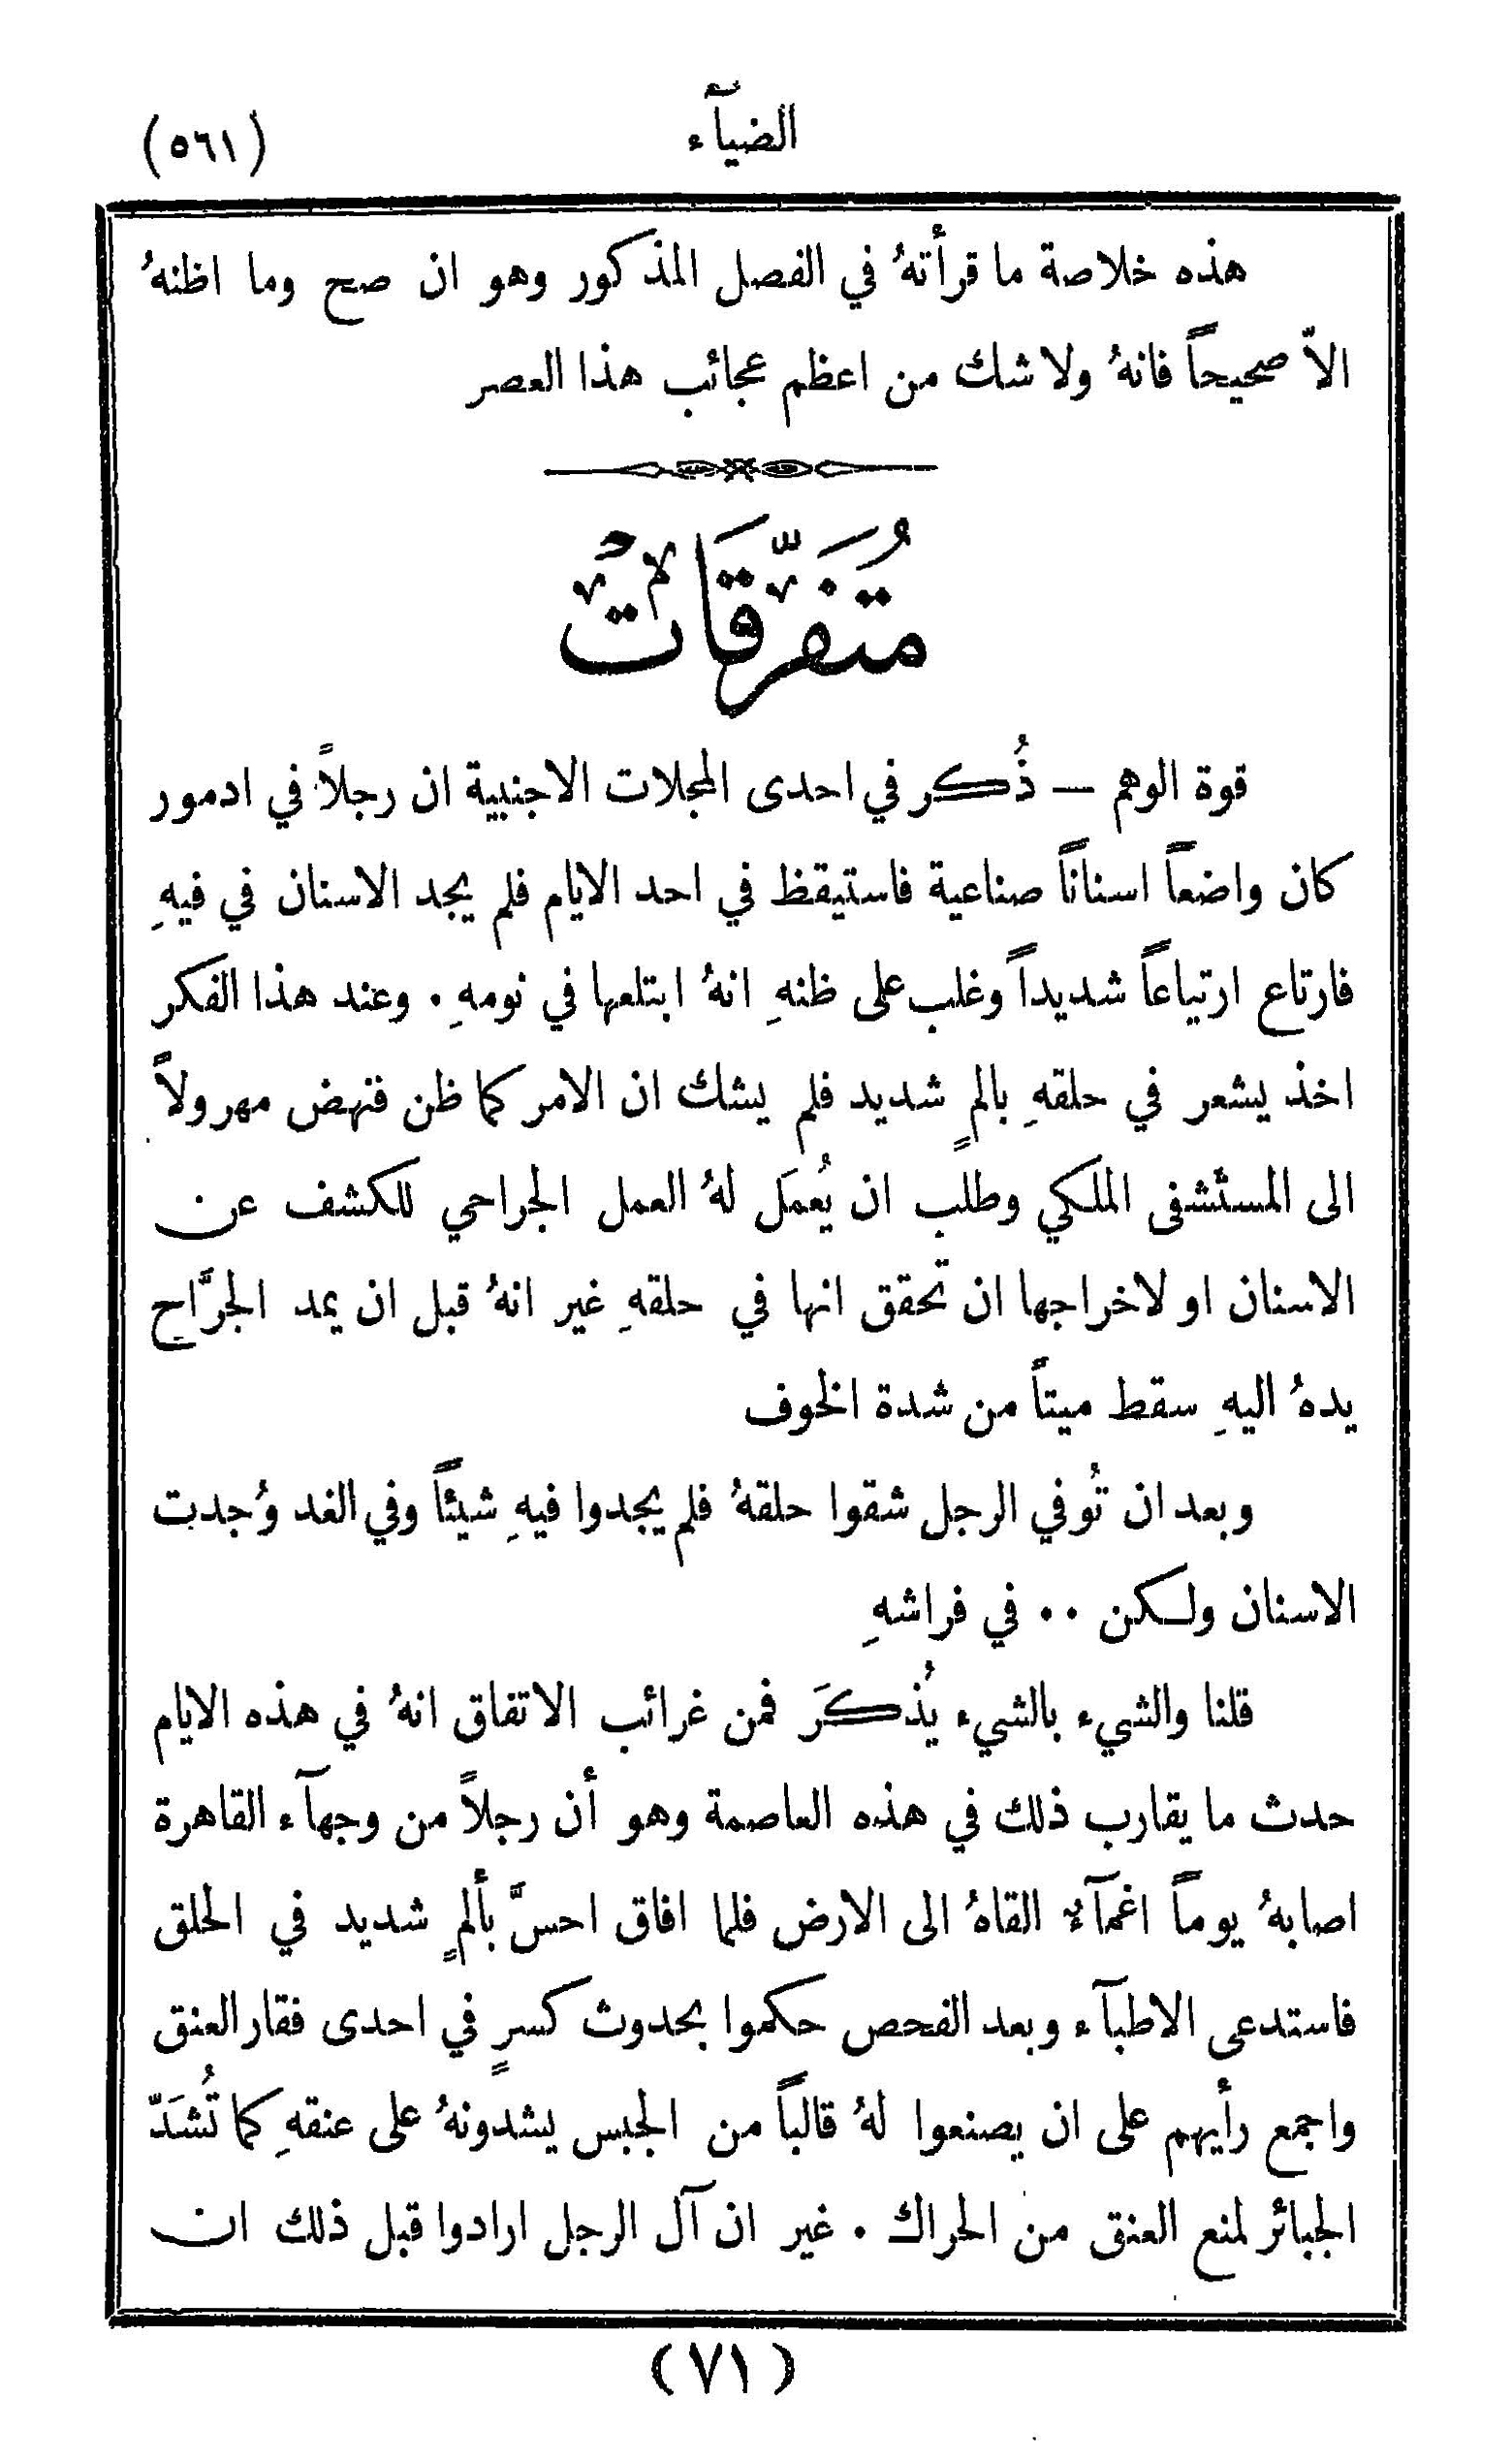 الضيآء
(٥٦١)
هذه خلاصة ما قرأتهُ في الفصل المذكور وهو ان صح وما اظنهُ
الاّ صحيحاً فانهُ ولا شك من اعظم عجائب هذا العصر
مُتَفَرِّقَاتٌ
قوة الوهم — ذُكر في احدى المجلات الاجنبية ان رجلاً في ادمور
كان واضعاً اسناناً صناعية فاستيقظ في احد الايام فلم يجد الاسنان في فيهِ
فارتاع ارتياعاً شديداً وغلب على ظنهِ انهُ ابتلعها في نومهِ . وعند هذا الفكر
اخذ يشعر في حلقهِ بالمٍ شديد فلم يشك ان الامر كما ظن فنهض مهرولاً
الى المستشفى الملكي وطلب ان يُعمَل لهُ العمل الجراحي للكشف عن
الاسنان او لاخراجها ان تحقق انها في حلقهِ غير انهُ قبل ان يمد الجرَّاح
يدهُ اليهِ سقط ميتاً من شدة الخوف
وبعد ان تُوفي الرجل شقوا حلقهُ فلم يجدوا فيهِ شيئاً وفي الغد وُجدت
الاسنان ولكن . . في فراشهِ
قلنا والشيء بالشيء يُذكَر فمن غرائب الاتفاق انهُ في هذه الايام
حدث ما يقارب ذلك في هذه العاصمة وهو أن رجلاً من وجهآء القاهرة
اصابهُ يوماً اغمآءٌ القاهُ الى الارض فلما افاق احسَّ بألمٍ شديد في الحلق
فاستدعى الاطبآء وبعد الفحص حكموا بحدوث كسرٍ في احدى فقار العنق
واجمع رأيهم على ان يصنعوا لهُ قالباً من الجبس يشدونهُ على عنقهِ كما تُشَدّ
الجبائر لمنع العنق من الحراك . غير ان آل الرجل ارادوا قبل ذلك ان
(٧١)